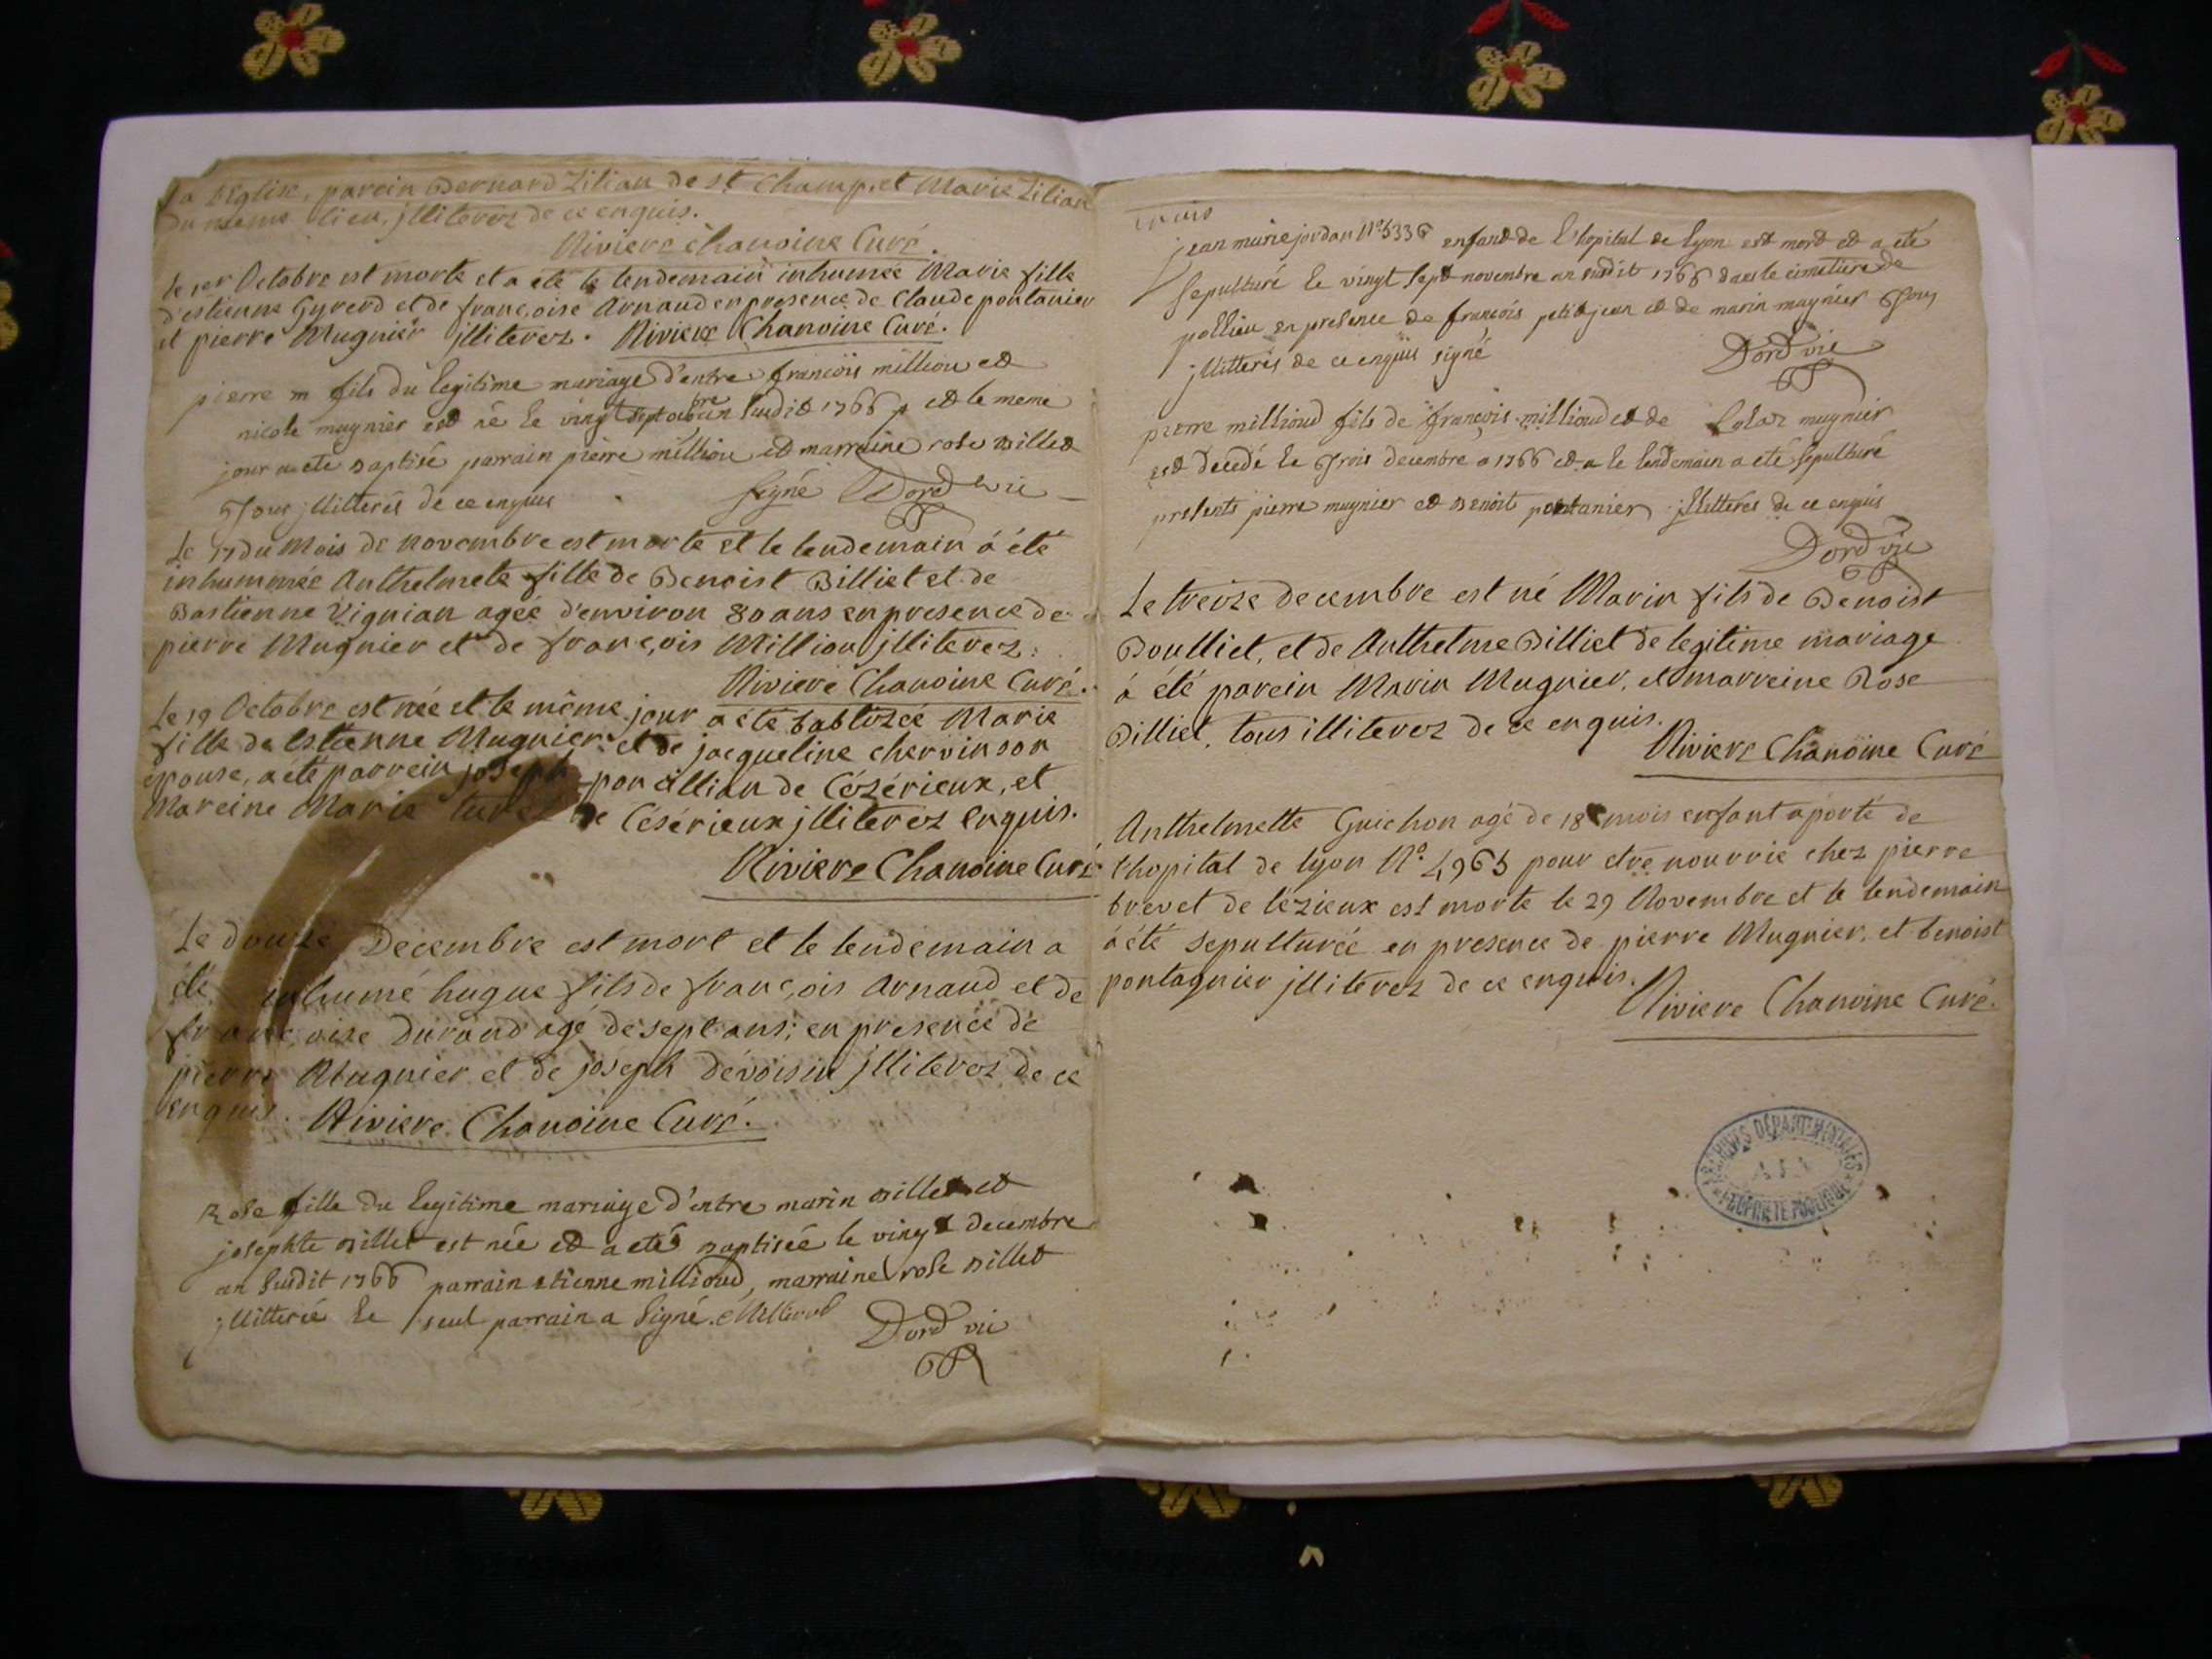 la Eglise, parein Bernard Zilian de st Champ, et Marie Zilian
du meme lieu, jlliterez de ce enquis.
Riviere Chanoine Curé.
le 1er Octobre est morte et a été le lendemain inhumée Marie fille
d'estienne Gyrerd et de françoise Arnaud en presence de Claude pontanier
et pierre Mugnier jlliterez. Riviere Chanoine Curé.
pierre m fils du legitime mariage d'entre françois milliou et
nicole mugnier est né le vingt sept octobre an susdit 1766 et le meme
jour a ete baptisé parrain pierre milliou et marraine rose billet
Tous jllitterés de ce enquis signé Dord vic
Le 17 du Mois de novembre est morte et le lendemain à été
inhummée Anthelmete fille de Benoist Billiet et de
Bastienne Vignian agée d'environ 80 ans en presence de
pierre Mugnier et de françois Milliou jlliterez.
Riviere Chanoine Curé.
Le 19 Octobre est née et le même jour a été babtizée Marie
fille de Estienne Mugnier et de jacqueline chervin son
epouse, a été parrein joseph ponsillian de Cézérieux, et
Mareine Marie de Césérieux jlliterez enquis.
Riviere Chanoine Curé
Le douze Decembre est mort et le lendemain a
été inhumé hugue fils de françois Arnaud et de
françoise Durand agé de sept ans; en presence de
pierre Mugnier et de joseph dévoisin jlliterez de ce
enquis. Riviere Chanoine Curé.
Rose fille du legitime mariage d'entre marin billet et
josephte billet est née et a eté baptisée le vingt decembre
an susdit 1766 parrain etienne millioud, marraine rose billet
jllitterée le seul parrain a signé. Millioud
Dord vic
jean marie jordan N° 5336 enfant de l'hopital de lyon est mort et a ete
sepulturé le vingt sept novembre an susdit 1766 dans le cimetiere de
pollieu en presence de françois petitjean et de marin mugnier Tous
jllitterés de ce enquis signé Dord vic
pierre millioud fils de françois millioud et de mugnier
est decedé le Trois decembre 1766 et a le lendemain a eté sepulturé
presents pierre mugnier et benoit pontanier jllitterés de ce enquis
Dord vic
Le treize decembre est né Marin fils de Benoist
Boulliet, et de Anthelme Billiet de legitime mariage
à été parein Marin Mugnier, et marreine Rose
Billiet, tous illiterez de ce enquis.
Riviere Chanoine Curé
Anthelmette Guichon agé de 18 mois enfant aporté de
l'hopital de lyon N°. 4965 pour etre nourrie chez pierre
brevet de lézieux est morte le 29 Novembre et le lendemain
à été sepulturée en presence de pierre Mugnier, et benoist
pontagnier jlliterez de ce enquis.
Riviere Chanoine Curé.
ARCHIVES DÉPARTEMENTALES
AIN
PROPRIÉTÉ PUBLIQUE